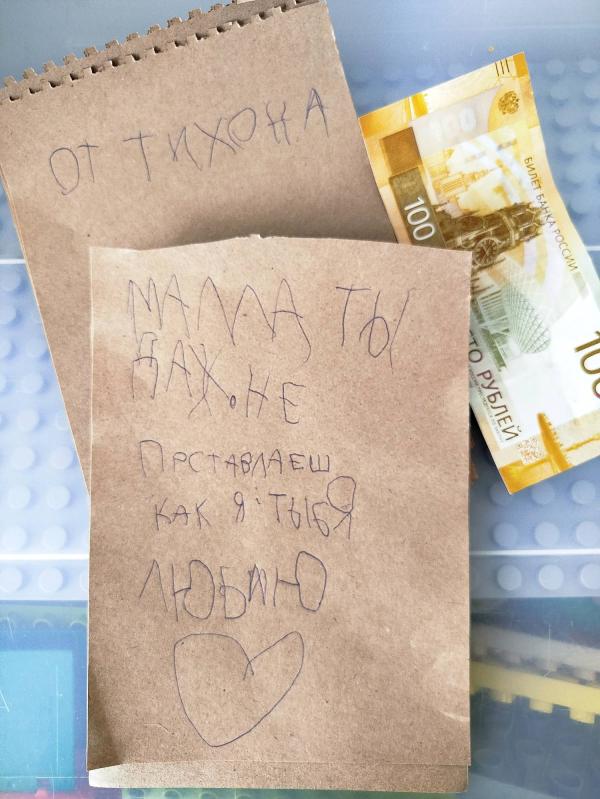 ОТ ТИХОНА
МАЛЛА ТЫ
ДАХ. НЕ
ПРСТАВЛАЕШ
КАК Я ТЫБЯ
ЛЮБЛЮ
БИЛЕТ БАНКА РОССИИ
100
100
100
СТО РУБЛЕЙ